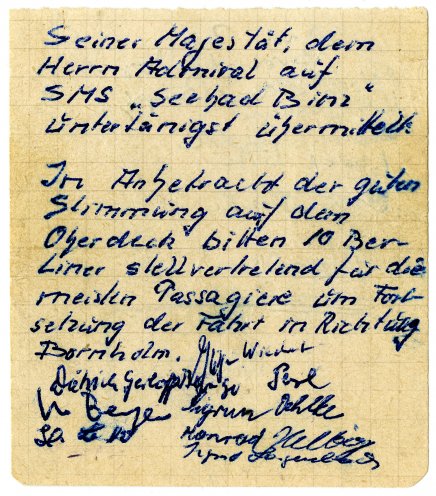 Seiner Majestät, dem
Herrn Admiral auf
SMS „Seebad Binz"
untertänigst übermittelt
Im Anbetracht der guten
Stimmung auf dem
Oberdeck bitten 10 Ber-
liner stellvertretend für die
meisten Passagiere um Fort-
setzung der Fahrt in Richtung
Bornholm.
Dietrich
Sigrun Oehlke
Konrad Helbig